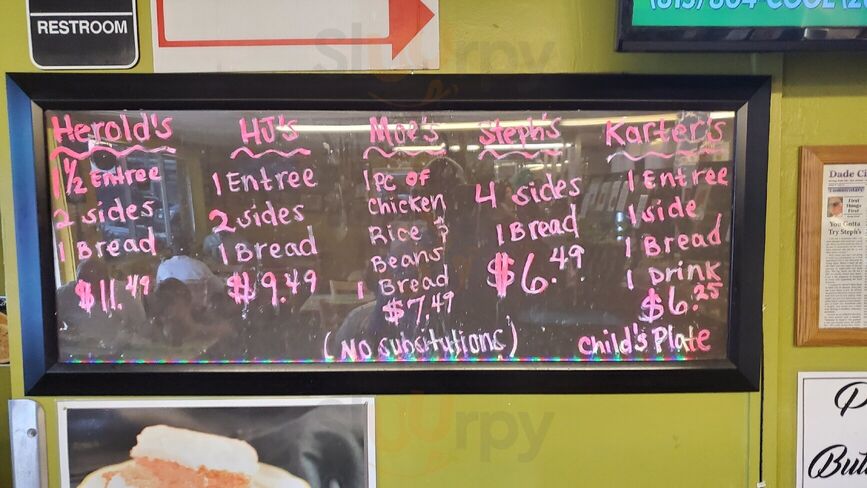 RESTROOM
Herold's
1/2 Entree
2 sides
1 Bread
$11.49
HJ's
1 Entree
2 sides
1 Bread
$9.49
Moe's
1 pc of
Chicken
Rice &
Beans
1 Bread
$7.49
(No substutions)
Steph's
4 sides
1 Bread
$6.49
Karter's
1 Entree
1 side
1 Bread
1 Drink
$6.25
Child's Plate
Dade Ci
First
Things
First
You Gotta
Try Steph's
But
Slurrpy
Slurrpy